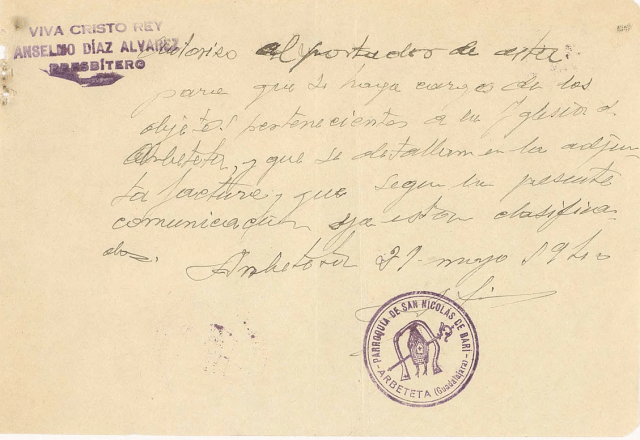 VIVA CRISTO REY
ANSELMO DÍAZ ALVAREZ
PRESBÍTERO
autoriso al portador de esta:
para que se haga cargo de los
objetos pertenecientes á la Yglesia d.
Arbeteta, y que se detallan en la adjun
ta factura, y que segun la presente
comunicación ya estan clasifica
dos.
Arbeteta 21 mayo 1940
PARROQUIA DE SAN NICOLAS DE BARI
ARBETETA (Guadalajara)